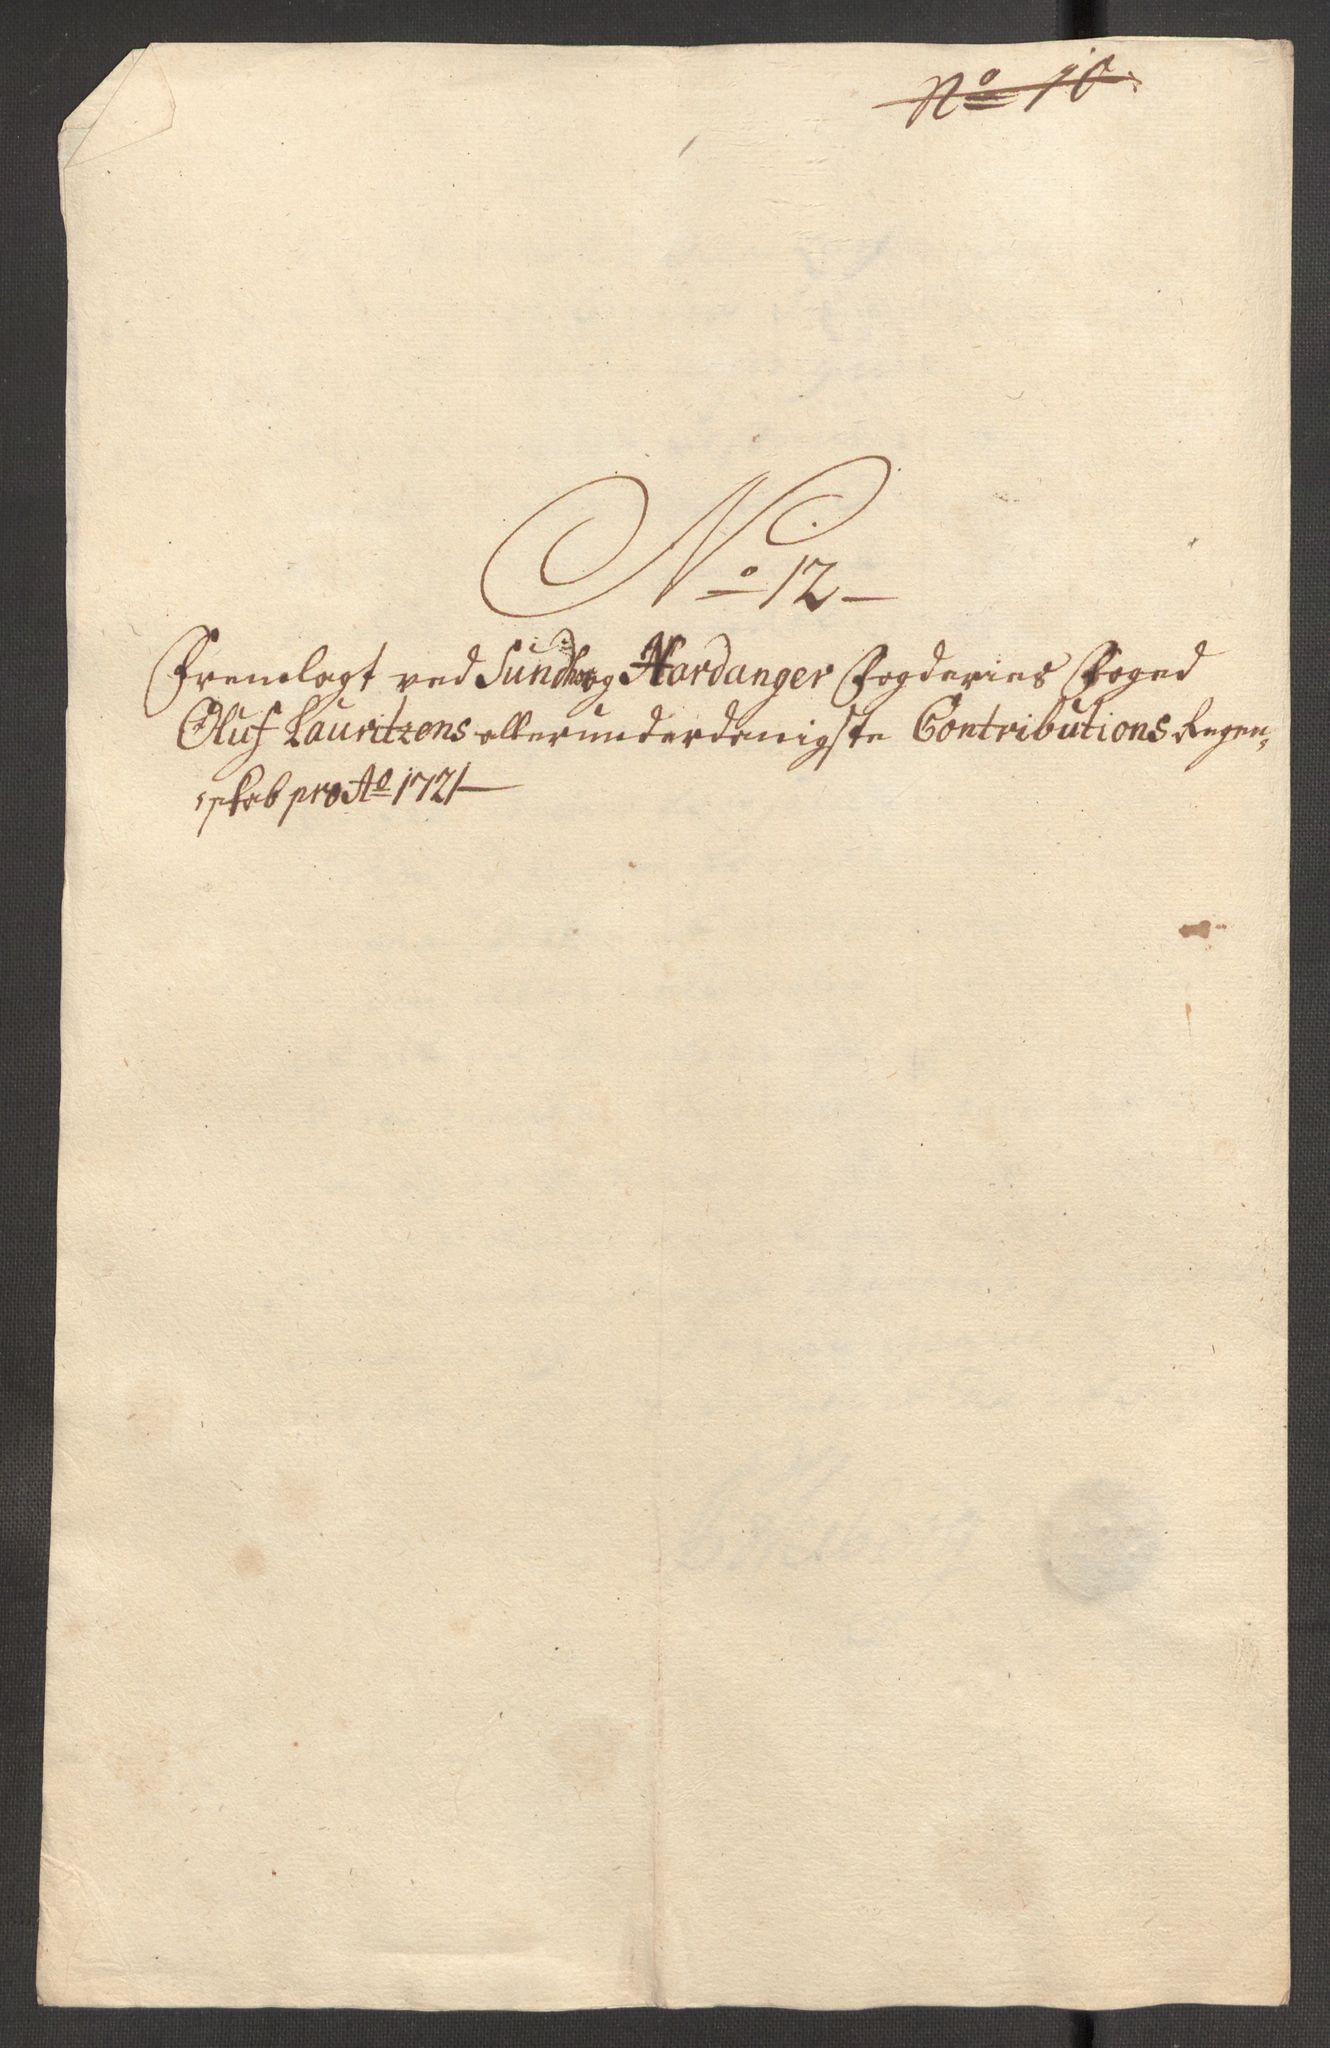 No 10.
No 12
Fremlagt ved Sundh. og Hardanger Fogderies Foged
Oluf Lauritzens allerunderdanigste Contributions Regen-
skab pro Ao 1721